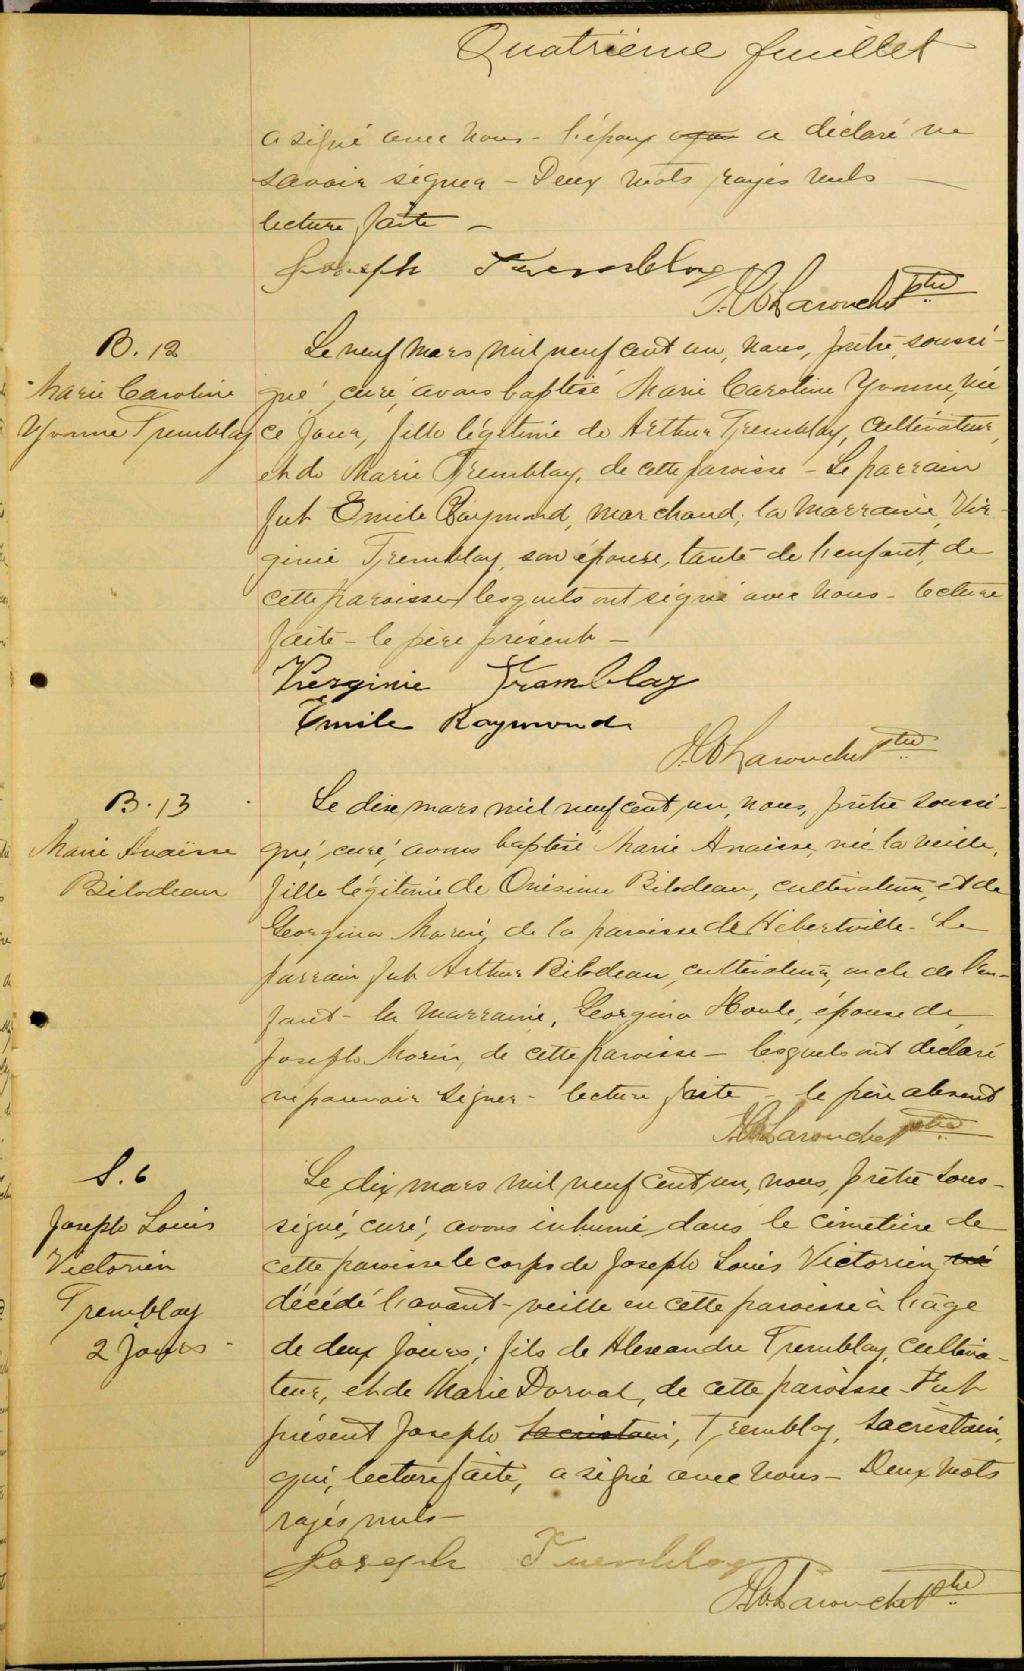 Quatrième feuillet
a signé avec nous - l'époux a déclaré ne
savoir signer - Deux mots rayés nuls
lecture faite -
Joseph Tremblay
J.W. Larouche Ptre
B. 12
Marie Caroline
Yvonne Tremblay
Le neuf mars mil neuf cent un, nous, prêtre soussi-
gné, curé, avons baptisé Marie Caroline Yvonne, née
ce jour, fille légitime de Arthur Tremblay, cultivateur,
et de Marie Tremblay, de cette paroisse - Le parrain
fut Emile Raymond, marchand, la marraine, Vir-
ginie Tremblay, son épouse, tante de l'enfant, de
cette paroisse lesquels ont signé avec nous - lecture
faite - le père présent -
Virginie Tramblay
Emile Raymond
J.W. Larouche Ptre
B. 13
Marie Anaïsse
Bilodeau
Le dix mars mil neuf cent un, nous, prêtre soussi-
gné, curé, avons baptisé Marie Anaisse, née la veille,
fille légitime de Onésime Bilodeau, cultivateur, et de
Georgina Morin, de la paroisse de Hébertville - Le
parrain fut Arthur Bilodeau, cultivateur, oncle de l'en-
fant - la marraine, Georgina Houle, épouse de
Joseph Morin, de cette paroisse - lesquels ont déclaré
ne pouvoir signer - lecture faite - le père absent
J.W. Larouche Ptre
S. 6
Joseph Louis
Victorien
Tremblay
2 jours -
Le dix mars mil neuf cent un, nous, prêtre sous-
signé, curé, avons inhumé dans le cimetière de
cette paroisse le corps de Joseph Louis Victorien, né
décédé l'avant-veille en cette paroisse à l'âge
de deux jours; fils de Alexandre Tremblay, cultiva-
teur, et de Marie Dorval, de cette paroisse - Fut
présent Joseph Sacristain, Tremblay, sacristain,
qui, lecture faite, a signé avec nous - Deux mots
rayés nuls -
Joseph Tremblay
J.W. Larouche Ptre